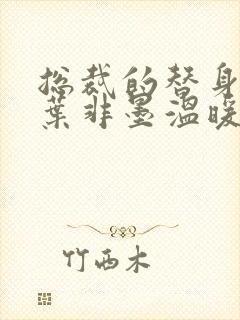 总裁的替身
叶非墨温暖
竹西木